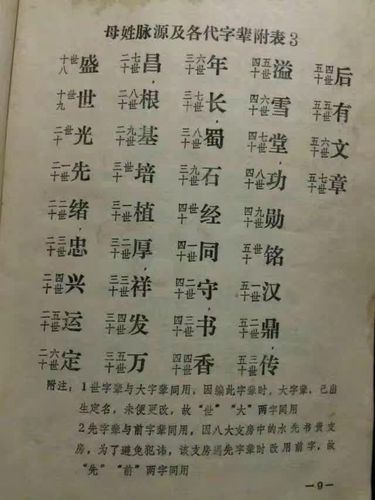 母姓脉源及各代字辈附表3
十八世盛 二十七世昌 三十六世年 四十五世溢 五十四世后
十九世世 二十八世根 三十七世长 四十六世雪 五十五世有
二十世光 二十九世基 三十八世蜀 四十七世堂 五十六世文
二十一世先 三十世培 三十九世石 四十八世功 五十七世章
二十二世绪 三十一世植 四十世经 四十九世勋
二十三世忠 三十二世厚 四十一世同 五十世铭
二十四世兴 三十三世祥 四十二世守 五十一世汉
二十五世运 三十四世发 四十三世书 五十二世鼎
二十六世定 三十五世万 四十四世香 五十三世传
附注：1世字辈与大字辈同用，因编此字辈时，大字辈，已出
生定名，未便更改，故“世”“大”两字同用
2先字辈与前字辈同用，因八大支房中的水先书贵支
房，为了避免犯讳，该支房遇先字辈时改用前字，故
“先”“前”两字同用
—9—